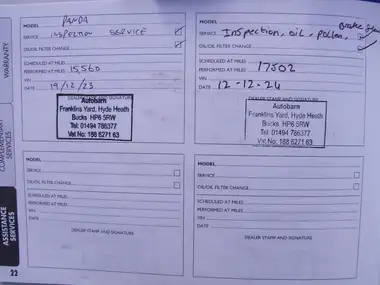 WARRANTY
COMPLEMENTARY
SERVICES
ASSISTANCE
SERVICES
22
MODEL PANDA
SERVICE INSPECTION SERVICE
OIL/OIL FILTER CHANGE
SCHEDULED AT MILES
PERFORMED AT MILES 15,560
VIN
DATE 19/12/23
DEALER STAMP AND SIGNATURE
Autobarn
Franklins Yard, Hyde Heath
Bucks HP6 5RW
Tel: 01494 786377
Vat No: 188 6271 63
MODEL
SERVICE Inspection, oil, pollen, Brake
OIL/OIL FILTER CHANGE
SCHEDULED AT MILES
PERFORMED AT MILES 17502
VIN
DATE 12-12-24
DEALER STAMP AND SIGNATURE
Autobarn
Franklins Yard, Hyde Heath
Bucks. HP6 5RW
Tel: 01494 786377
Vat No: 188 6271 63
MODEL
SERVICE
OIL/OIL FILTER CHANGE
SCHEDULED AT MILES
PERFORMED AT MILES
VIN
DATE
DEALER STAMP AND SIGNATURE
MODEL
SERVICE
OIL/OIL FILTER CHANGE
SCHEDULED AT MILES
PERFORMED AT MILES
VIN
DATE
DEALER STAMP AND SIGNATURE